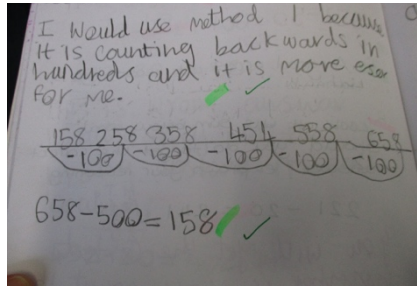 I Would use method 1 because
it is counting backwards in
hundreds and it is more eser
for me.
158 258 358 454 558 658
-100 -100 -100 -100 -100
658-500=158